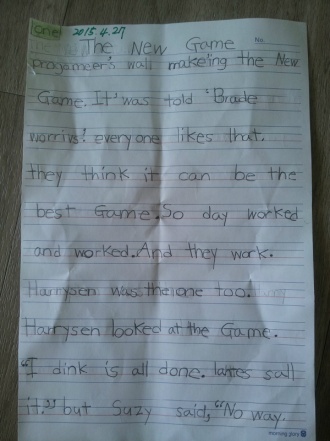 one 2015 4.27
The New Game No.
progameer's wall makeing the New
Game. It' was told 'Brade
worrivs'. every one likes that.
they think it can be the
best Game. So day worked
and worked. And they work.
Harrysen was the one too.
Harrysen looked at the Game.
"I dink is all done. lates sall
it." but Suzy said, "No way.
morning glory